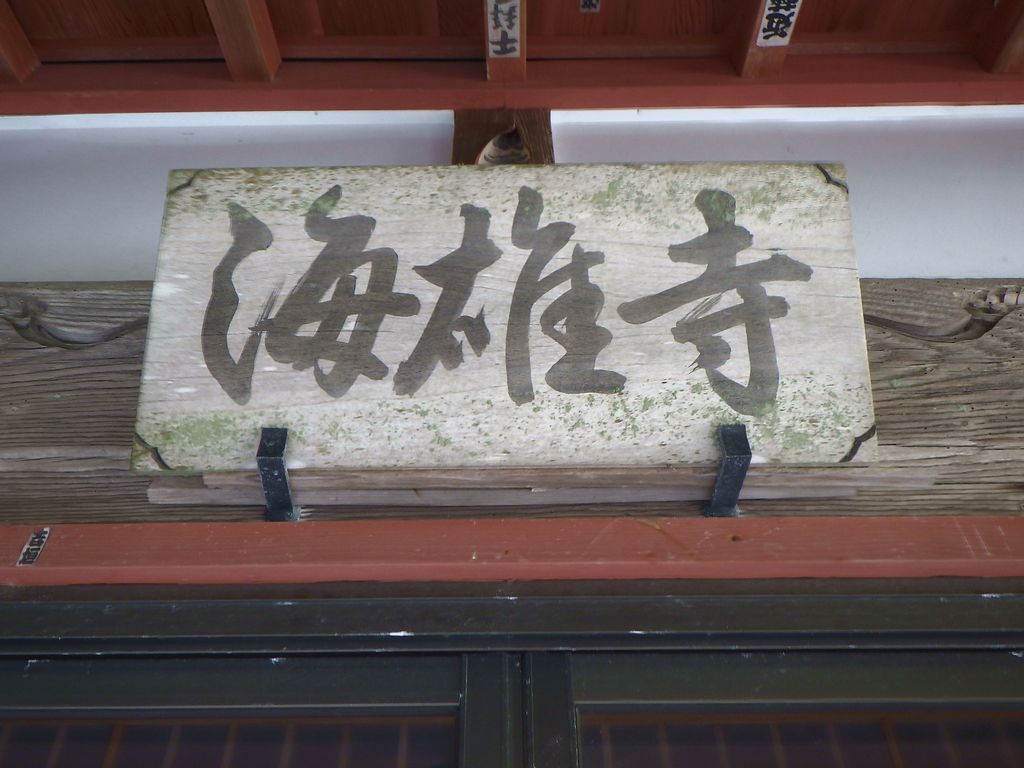 海雄寺